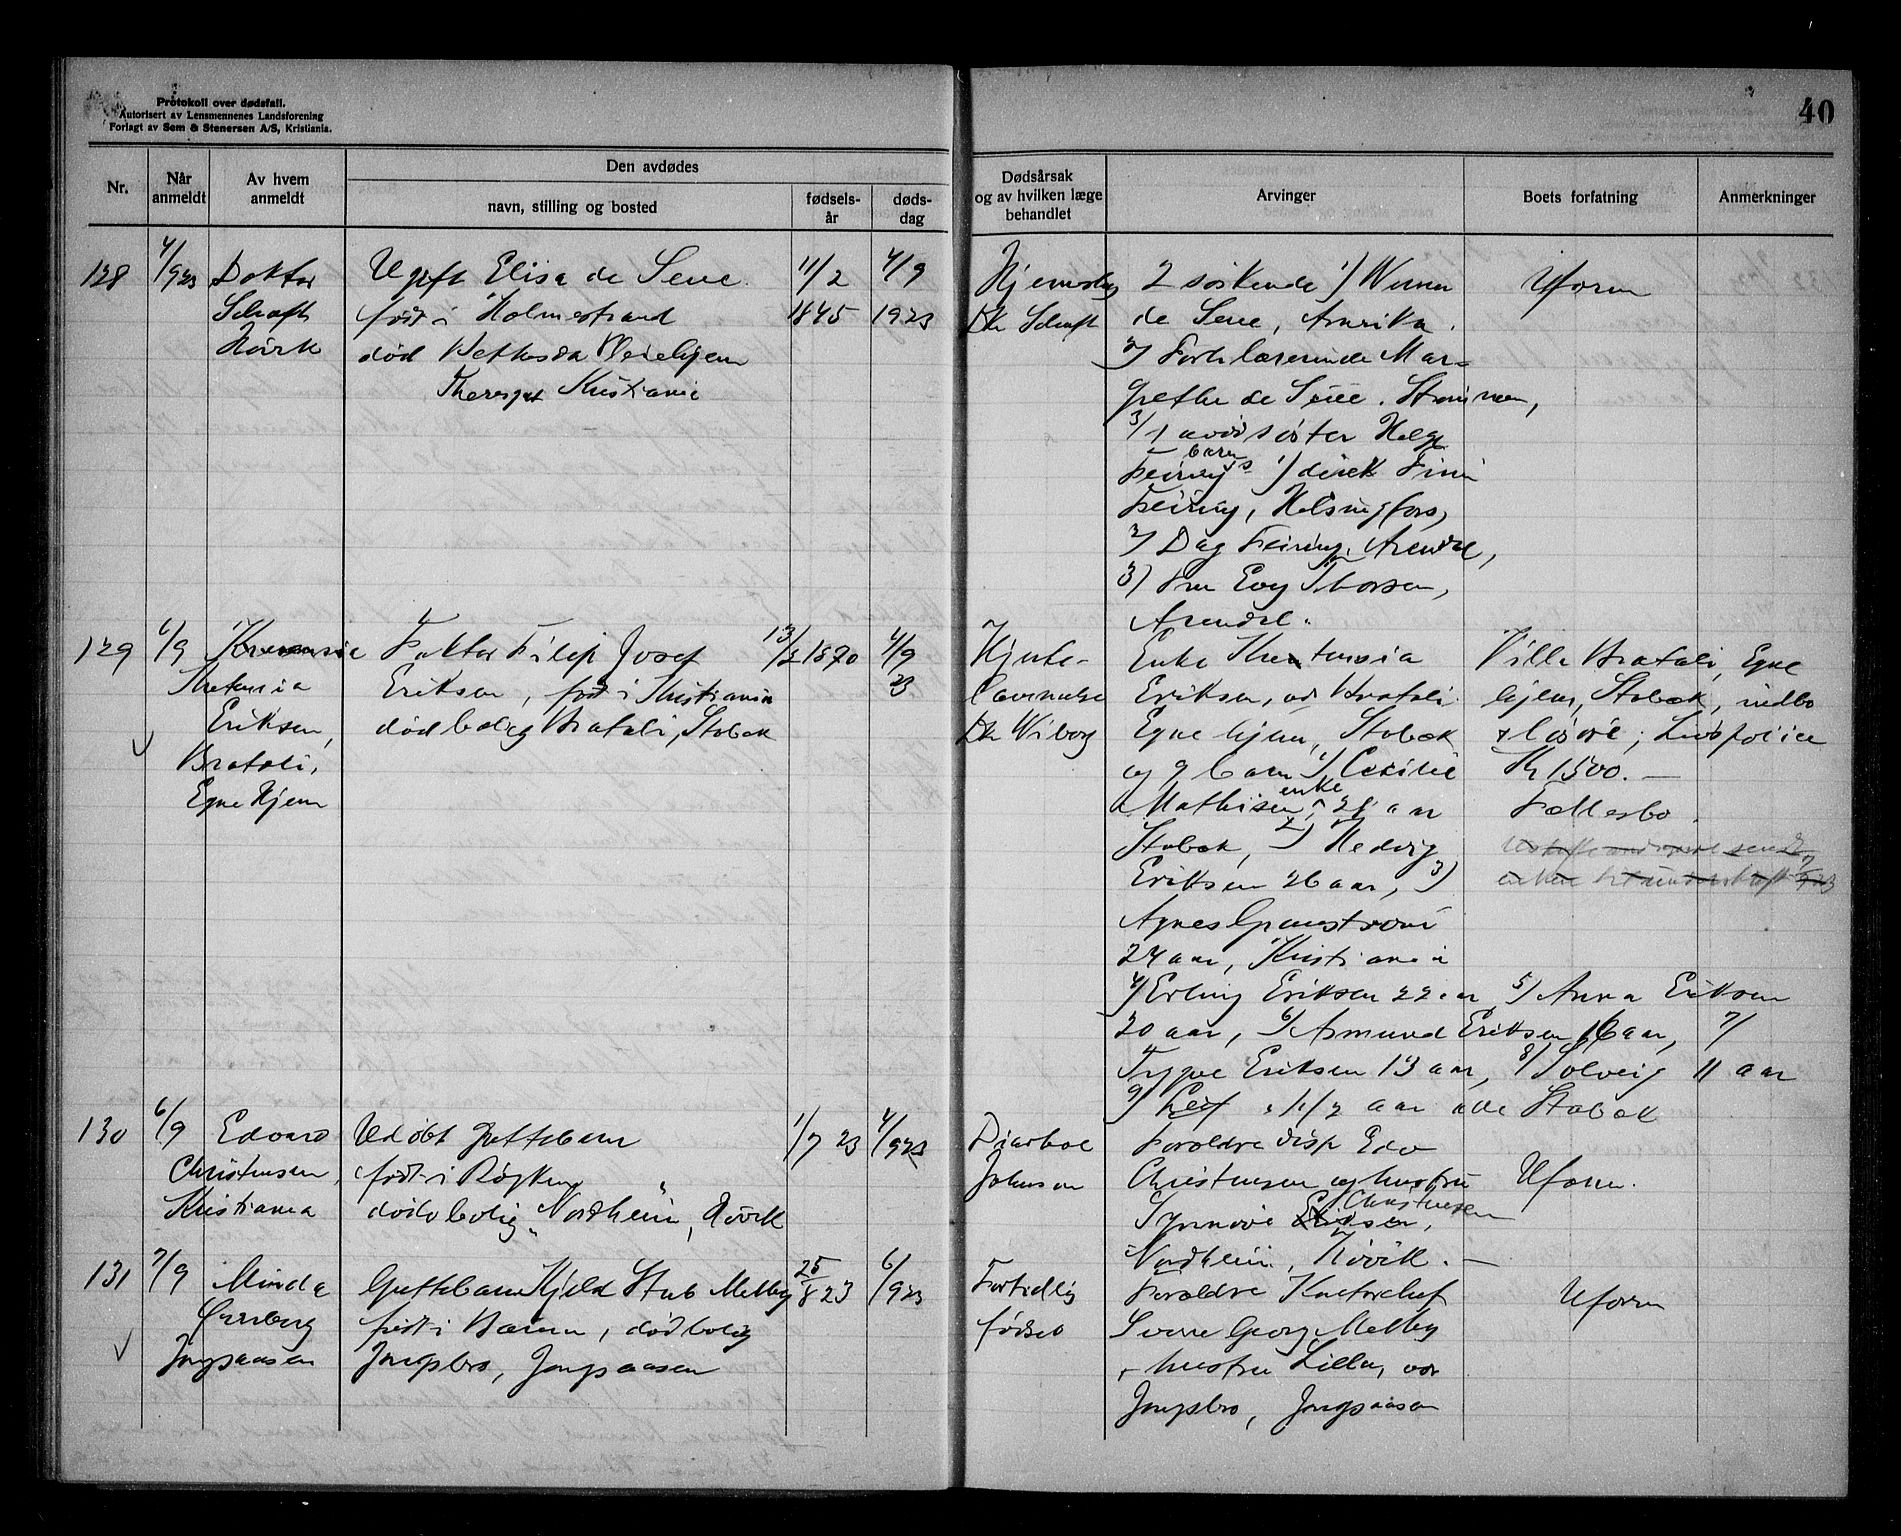 Protokoll over dødsfall.
Autorisert av Lensmennenes Landsforening
Forlagt av Sem & Stenersen A/S, Kristiania.
40
Nr.
Når anmeldt
Av hvem anmeldt
Den avdødes
navn, stilling og bosted
fødsels-år
døds-dag
Dødsårsak og av hvilken læge behandlet
Arvinger
Boets forfatning
Anmerkninger
128
4/9 23
Doktor
Høvik
Ugift Elisa de Seue
født i Holmestrand
død Bethesda Pleiehjem
Kristiania
11/2
1845
4/9
1923
Dr
2 søskende 1)
de Seue, Amerika.
2) Mar-
grethe de Seue. Strømmen,
3/ 1 avdød søster Helga
barn
Feirings 1) direkt Finn
Feiring, Helsingfors,
2) Dag Feiring, Arendal,
3) Fru Evy Thorsen,
Arendal.
Uform
129
6/9
Eriksen,
Bratali,
Egne Hjem
Faktor Filip Josef
Eriksen, født i Kristiania
død bolig Bratali, Stabæk
13/2 1870
4/9
23
Hjerte-
lammelse
Dr Wiborg
Enke
Eriksen, adr Bratali
Egne hjem, Stabæk
og 9 barn 1) Cecilie
Mathisen, enke 28 aar
Stabæk, 2) Hedvig
Eriksen 26 aar, 3)
Agnes
24 aar, Kristiania
4) Erling Eriksen 22 aar, 5) Anna Eriksen
20 aar, 6) Asmund Eriksen 16 aar, 7/
Trygve Eriksen 13 aar, 8/ Solveig 11 aar
9) Leif aar alle Stabæk
Villa Bratali, Egne
hjem, Stabæk, indbo
& løsøre; Livspolice
Kr 1500.—
Fællesbo.
130
6/9
Edvard
Christensen,
Kristiania
Udøbt Guttebarn
født i Røyken
død bolig "Nordheim", Høvik
1/7 23
4/9 23
Johnson
Forældre disp Edv
Christensen og hustru
Synnøve Christensen,
Nordheim, Høvik.—
Uform.
131
7/9
Minda
Jongsaasen
Guttebarn Kjeld Stub Melby
født i Bærum, død bolig
Jongsbro, Jongsaasen
25/8 23
6/9 23
Fortidlig
fødsel
Forældre Kontorchef
Sverre Georg Melby
& hustru Lilla, adr
Jongsbro, Jongsaasen
Uform